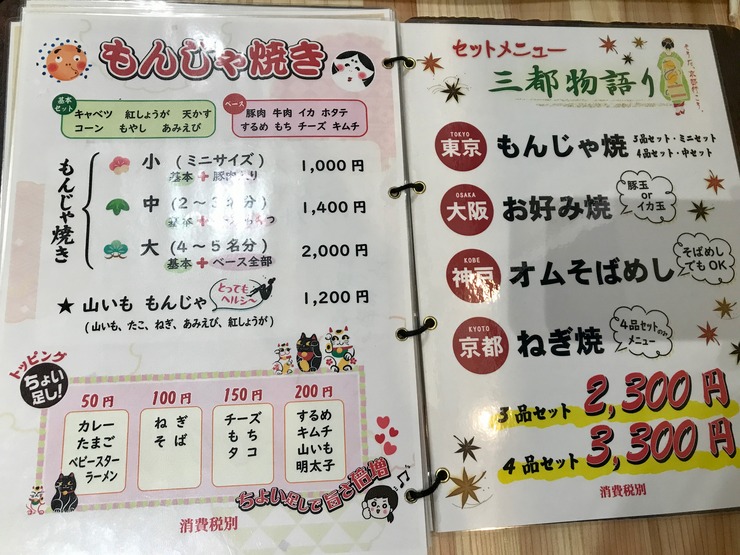 もんじゃ焼き
基本セット
キャベツ 紅しょうが 天かす
コーン もやし あみえび
ベース
豚肉 牛肉 イカ ホタテ
するめ もち チーズ キムチ
もんじゃ焼き
小 (ミニサイズ) 1,000円
基本+豚肉入り
中 (2~3名分) 1,400円
基本+
大 (4~5名分) 2,000円
基本+ベース全部
★ 山いも もんじゃ 1,200円
とってもヘルシ~
(山いも、たこ、ねぎ、あみえび、紅しょうが)
トッピング
ちょい足し!
50円
カレー
たまご
ベビースター
ラーメン
100円
ねぎ
そば
150円
チーズ
もち
タコ
200円
するめ
キムチ
山いも
明太子
ちょい足しで旨さ倍増
消費税別
セットメニュー
三都物語り
TOKYO
東京 もんじゃ焼 3品セット・ミニセット
4品セット・中セット
OSAKA
大阪 お好み焼
豚玉
or
イカ玉
KOBE
神戸 オムそばめし
そばめし
でもOK
KYOTO
京都 ねぎ焼
4品セットのみ
メニュー
3品セット 2,300円
4品セット 3,300円
消費税別